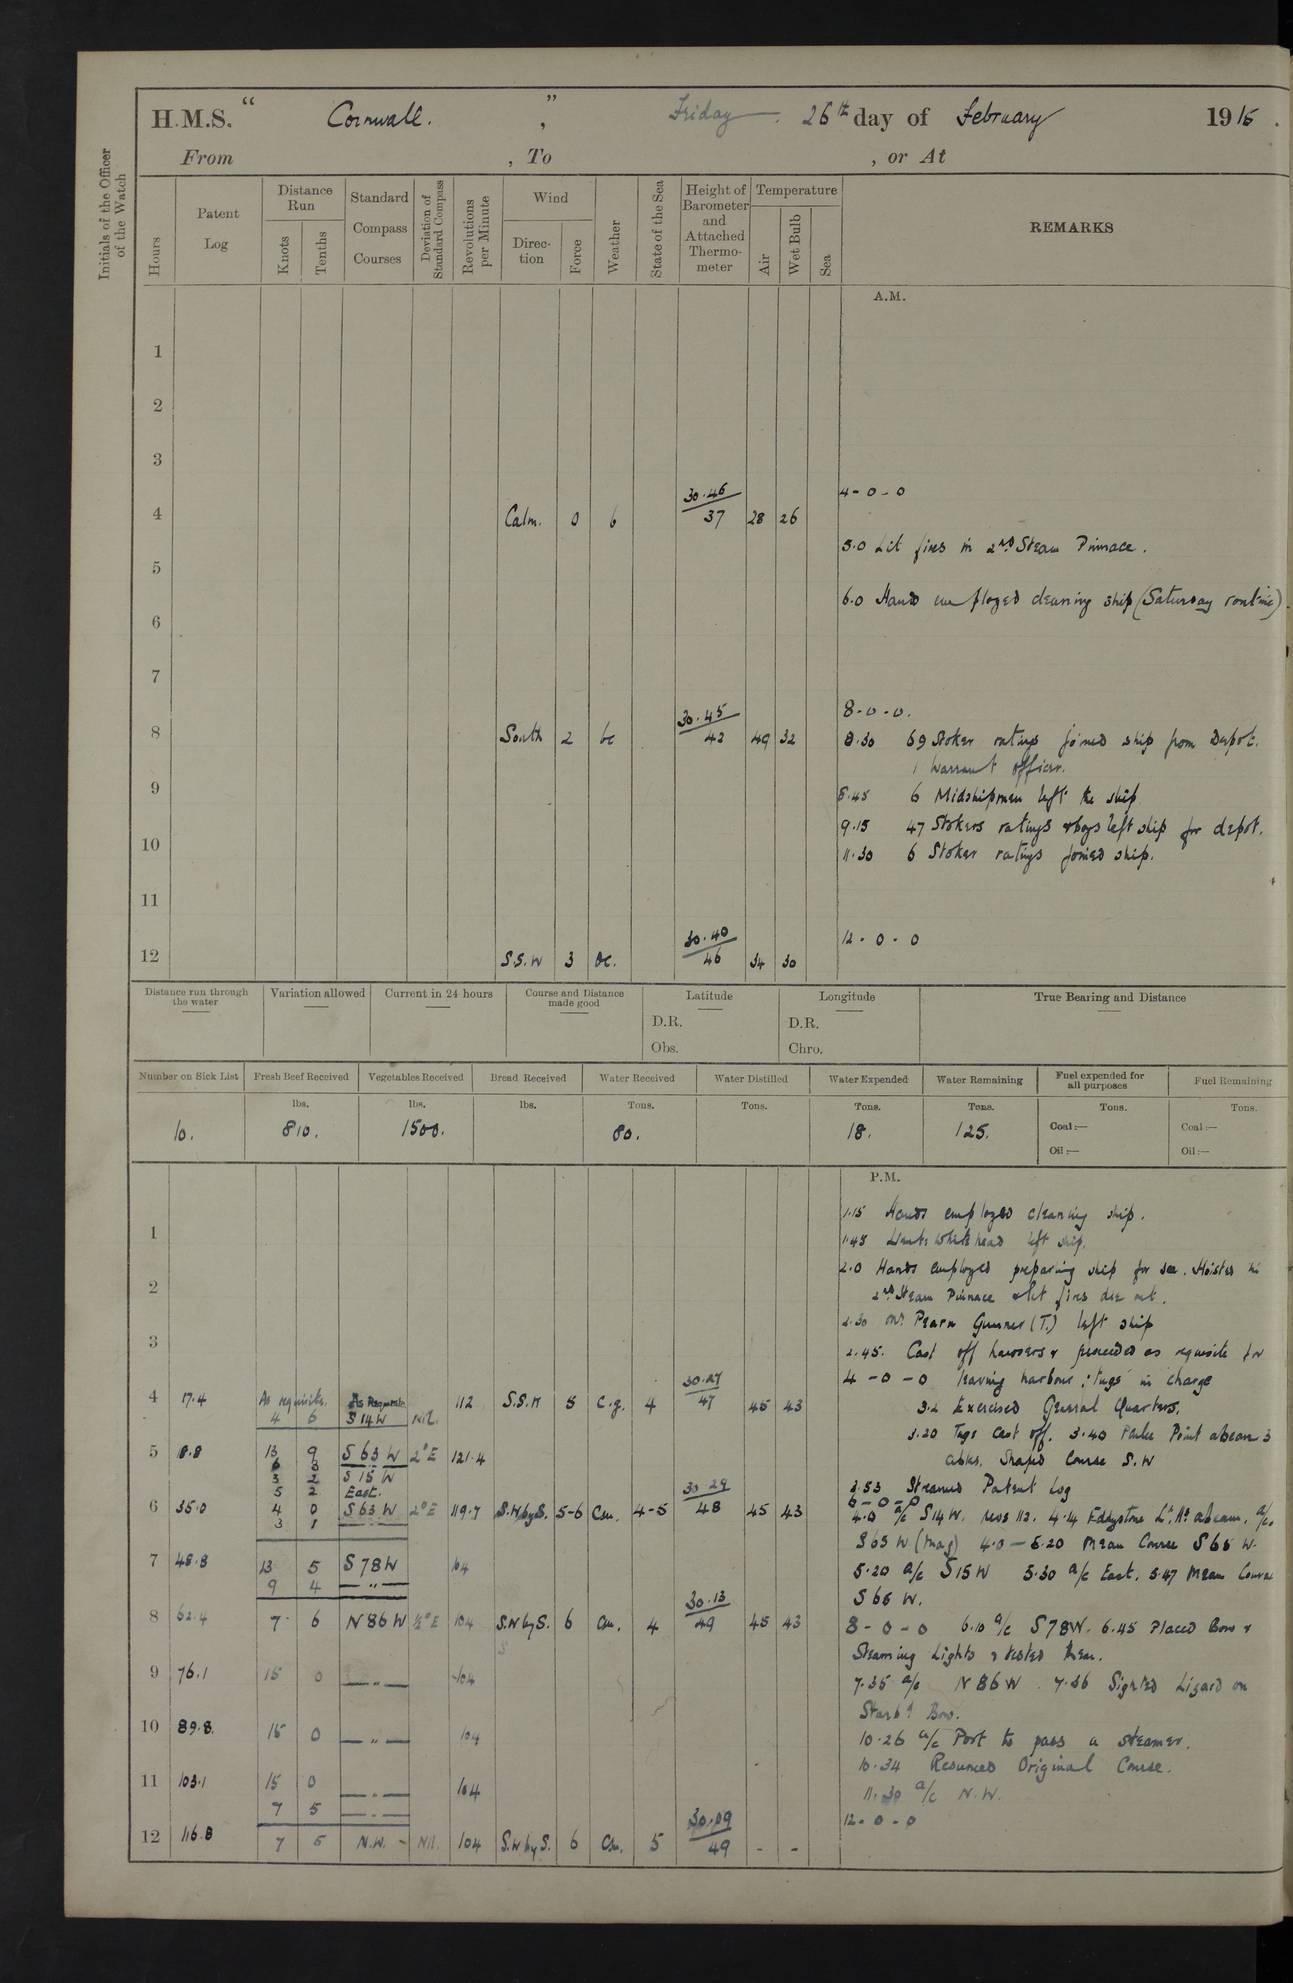 H.M.S. “ Cornwall. ” , Friday . 26th day of February 1915 .
From , To , or At
Initials of the Officer of the Watch
Hours
Patent Log
Distance Run
Knots
Tenths
Standard Compass Courses
Deviation of Standard Compass
Revolutions per Minute
Wind
Direction
Force
Weather
State of the Sea
Height of Barometer and Attached Thermometer
Temperature
Air
Wet Bulb
Sea
REMARKS
A.M.
1
2
3
4 Calm. 0 b 30.46 37 28 26 4-0-0
5.0 Lit fires in 2nd Steam Pinnace.
5
6.0 Hands employed cleaning ship (Saturday routine)
6
7
8-0-0.
8 South 2 bc 30.45 42 49 32 8.30 69 Stoker ratings joined ship from Depot.
1 Warrant officer.
9 8.45 6 Midshipmen left the ship
9.15 47 Stokers ratings & boys left ship for depot.
10 11.30 6 Stoker ratings joined ship.
11
12 S.S.W 3 bc. 30.40 46 34 30 12-0-0
Distance run through the water
Variation allowed
Current in 24 hours
Course and Distance made good
Latitude
D.R.
Obs.
Longitude
D.R.
Chro.
True Bearing and Distance
Number on Sick List
Fresh Beef Received
Vegetables Received
Bread Received
Water Received
Water Distilled
Water Expended
Water Remaining
Fuel expended for all purposes
Fuel Remaining
lbs. lbs. lbs. Tons. Tons. Tons. Tons. Tons. Tons.
10. 810. 1500. 80. 18. 125. Coal:— Coal:—
Oil:— Oil:—
P.M.
1.15 Hands employed cleaning ship.
1 1.45 Whitehead left ship.
2.0 Hands employed preparing ship for sea. Hoisted in
2 2nd Steam Pinnace & let fires die out.
2.30 Mr Pearn Gunner (T.) left ship
3 2.45. Cast off hawsers & proceeded as requisite for
4-0-0 leaving harbour; tugs in charge
4 17.4 As requisite. As Requisite 112 S.S.W 5 c.g. 4 30.27 47 45 43
4 6 S14W Nil.
3.2 Exercised General Quarters.
3.20 Tugs cast off. 3.40 Point abeam 3
5 8.8 13 9 S 63 W 2°E 121.4
cables. Shaped Course S.W
6 3
3 2 S 15 W
5 2 East.
3.53 Streamed Patent Log
6-0-0
6 35.0 4 0 S 63 W 2°E 119.7 S.W by S. 5-6 Cm. 4-5 30.29 48 45 43
3 1 — " —
4.0 a/c S14W. revs 112. 4.14 Eddystone Lt. Ho abeam. a/c.
S63W (mag) 4.0 — 5.20 Mean Course S 65 W.
7 48.8 13 5 S 78 W 104
9 4 — " —
5.20 a/c S15W 5.30 a/c East. 5.47 Mean Course
S 65 W.
8 62.4 7 6 N 86 W ½°E 104 S.W by S. 6 Cm. 4 30.13 49 45 43
8-0-0 6.10 a/c S78W. 6.45 Placed Bow &
Steaming Lights & tested them.
9 76.1 15 0 — " — 104
7.35 a/c N 86 W. 7.36 Sighted Lizard on
Starbd Bow.
10 89.8. 15 0 — " — 104
10.26 a/c Port to pass a steamer.
10.34 Resumed Original Course.
11 103.1 15 0 — " — 104
7 5 — " —
11.30 a/c N.W.
12-0-0
12 116.8 7 5 N.W. Nil. 104 S.W by S. 6 Cm. 5 30.09 49 - -